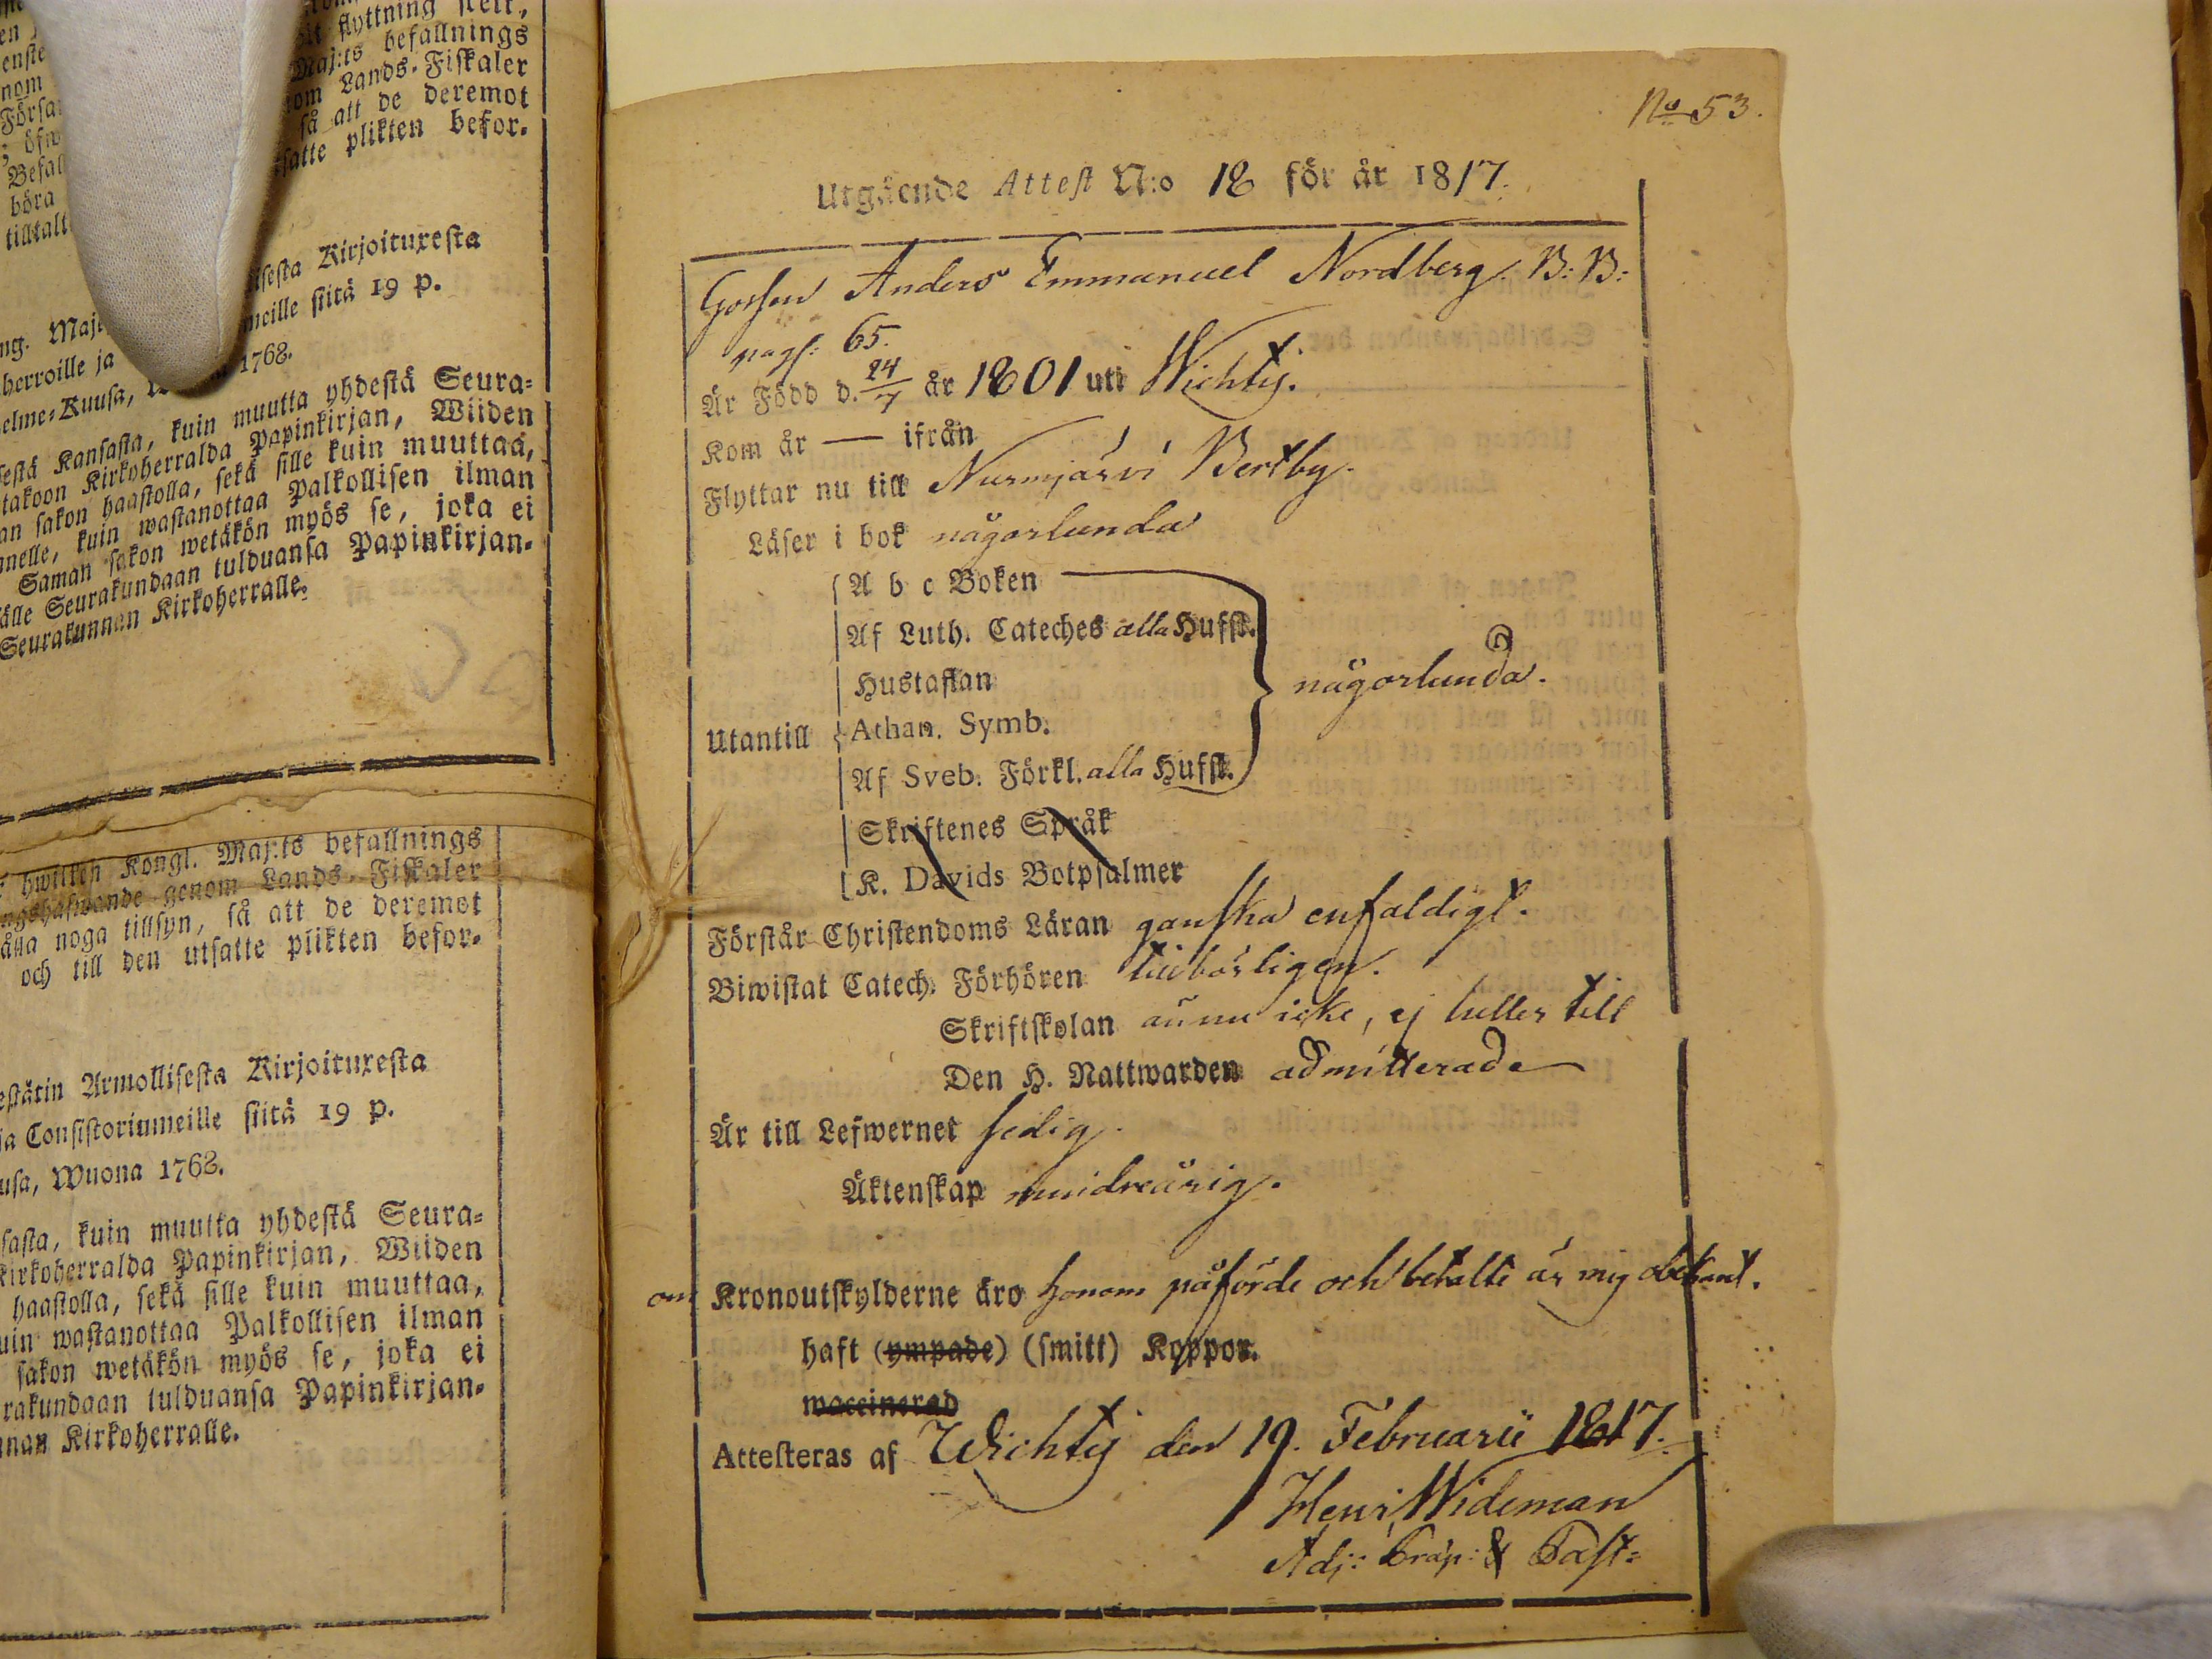 flyttning skett,
Maj:ts befallnings
som Lands-Fiskaler
så att de deremot
utsatte plikten befor-
Kirjoituxesta
meille siitä 19 p.
1768.
kuin muutta yhdestä Seura-
takoon Kirkoherralda Papinkirjan, Wiiden
sakon haastolla, sekä sille kuin muuttaa,
kuin wastanottaa Palkollisen ilman
Saman sakon wetäkön myös se, joka ei
Seurakundaan tulduansa Papinkirjan-
Seurakunnan Kirkoherralle.
hwilken Kongl. Maj:ts befallnings
genom Lands-Fiskaler
noga tillsyn, så att de deremot
och till den utsatte plikten befor-
Armollisesta Kirjoituxesta
ja Consistoriumeille siitä 19 p.
Wuona 1768.
kuin muutta yhdestä Seura-
Kirkoherralda Papinkirjan, Wiiden
haastolla, sekä sille kuin muuttaa,
kuin wastanottaa Palkollisen ilman
sakon wetäkön myös se, joka ei
tulduansa Papinkirjan-
Kirkoherralle.
No 53.
Utgående Attest N:o 18 för år 1817.
Gossen Anders Emmanuel Nordberg B: B:
pag: 65.
Är Född d. 24/7 år 1801 uti Wichtis.
Kom år — ifrån
Flyttar nu till Nurmjärvi Bertby.
Läser i bok någorlunda
A b c Boken
Af Luth. Cateches alla Hufst.
Hustaflan
någorlunda.
Utantill Athan. Symb.
Af Sveb. Förkl. alla Hufst.
Skriftenes Språk
K. Davids Botpsalmer
Förstår Christendoms Läran ganska enfaldigt.
Biwistat Catech. Förhören tilbörligen.
Skriftskolan ännu icke, ej heller till
Den H. Nattwarden admitterad
Är till Lefwernet sedig.
Äktenskap mindreårig.
om Kronoutskylderne äro honom påförde och betalte är mig obekant.
haft (ympade) (smitt) Koppor.
waccinerad
Attesteras af Wichtis den 19. Februarii 1817.
Henr. Wideman
Adj: Præp: & Past: